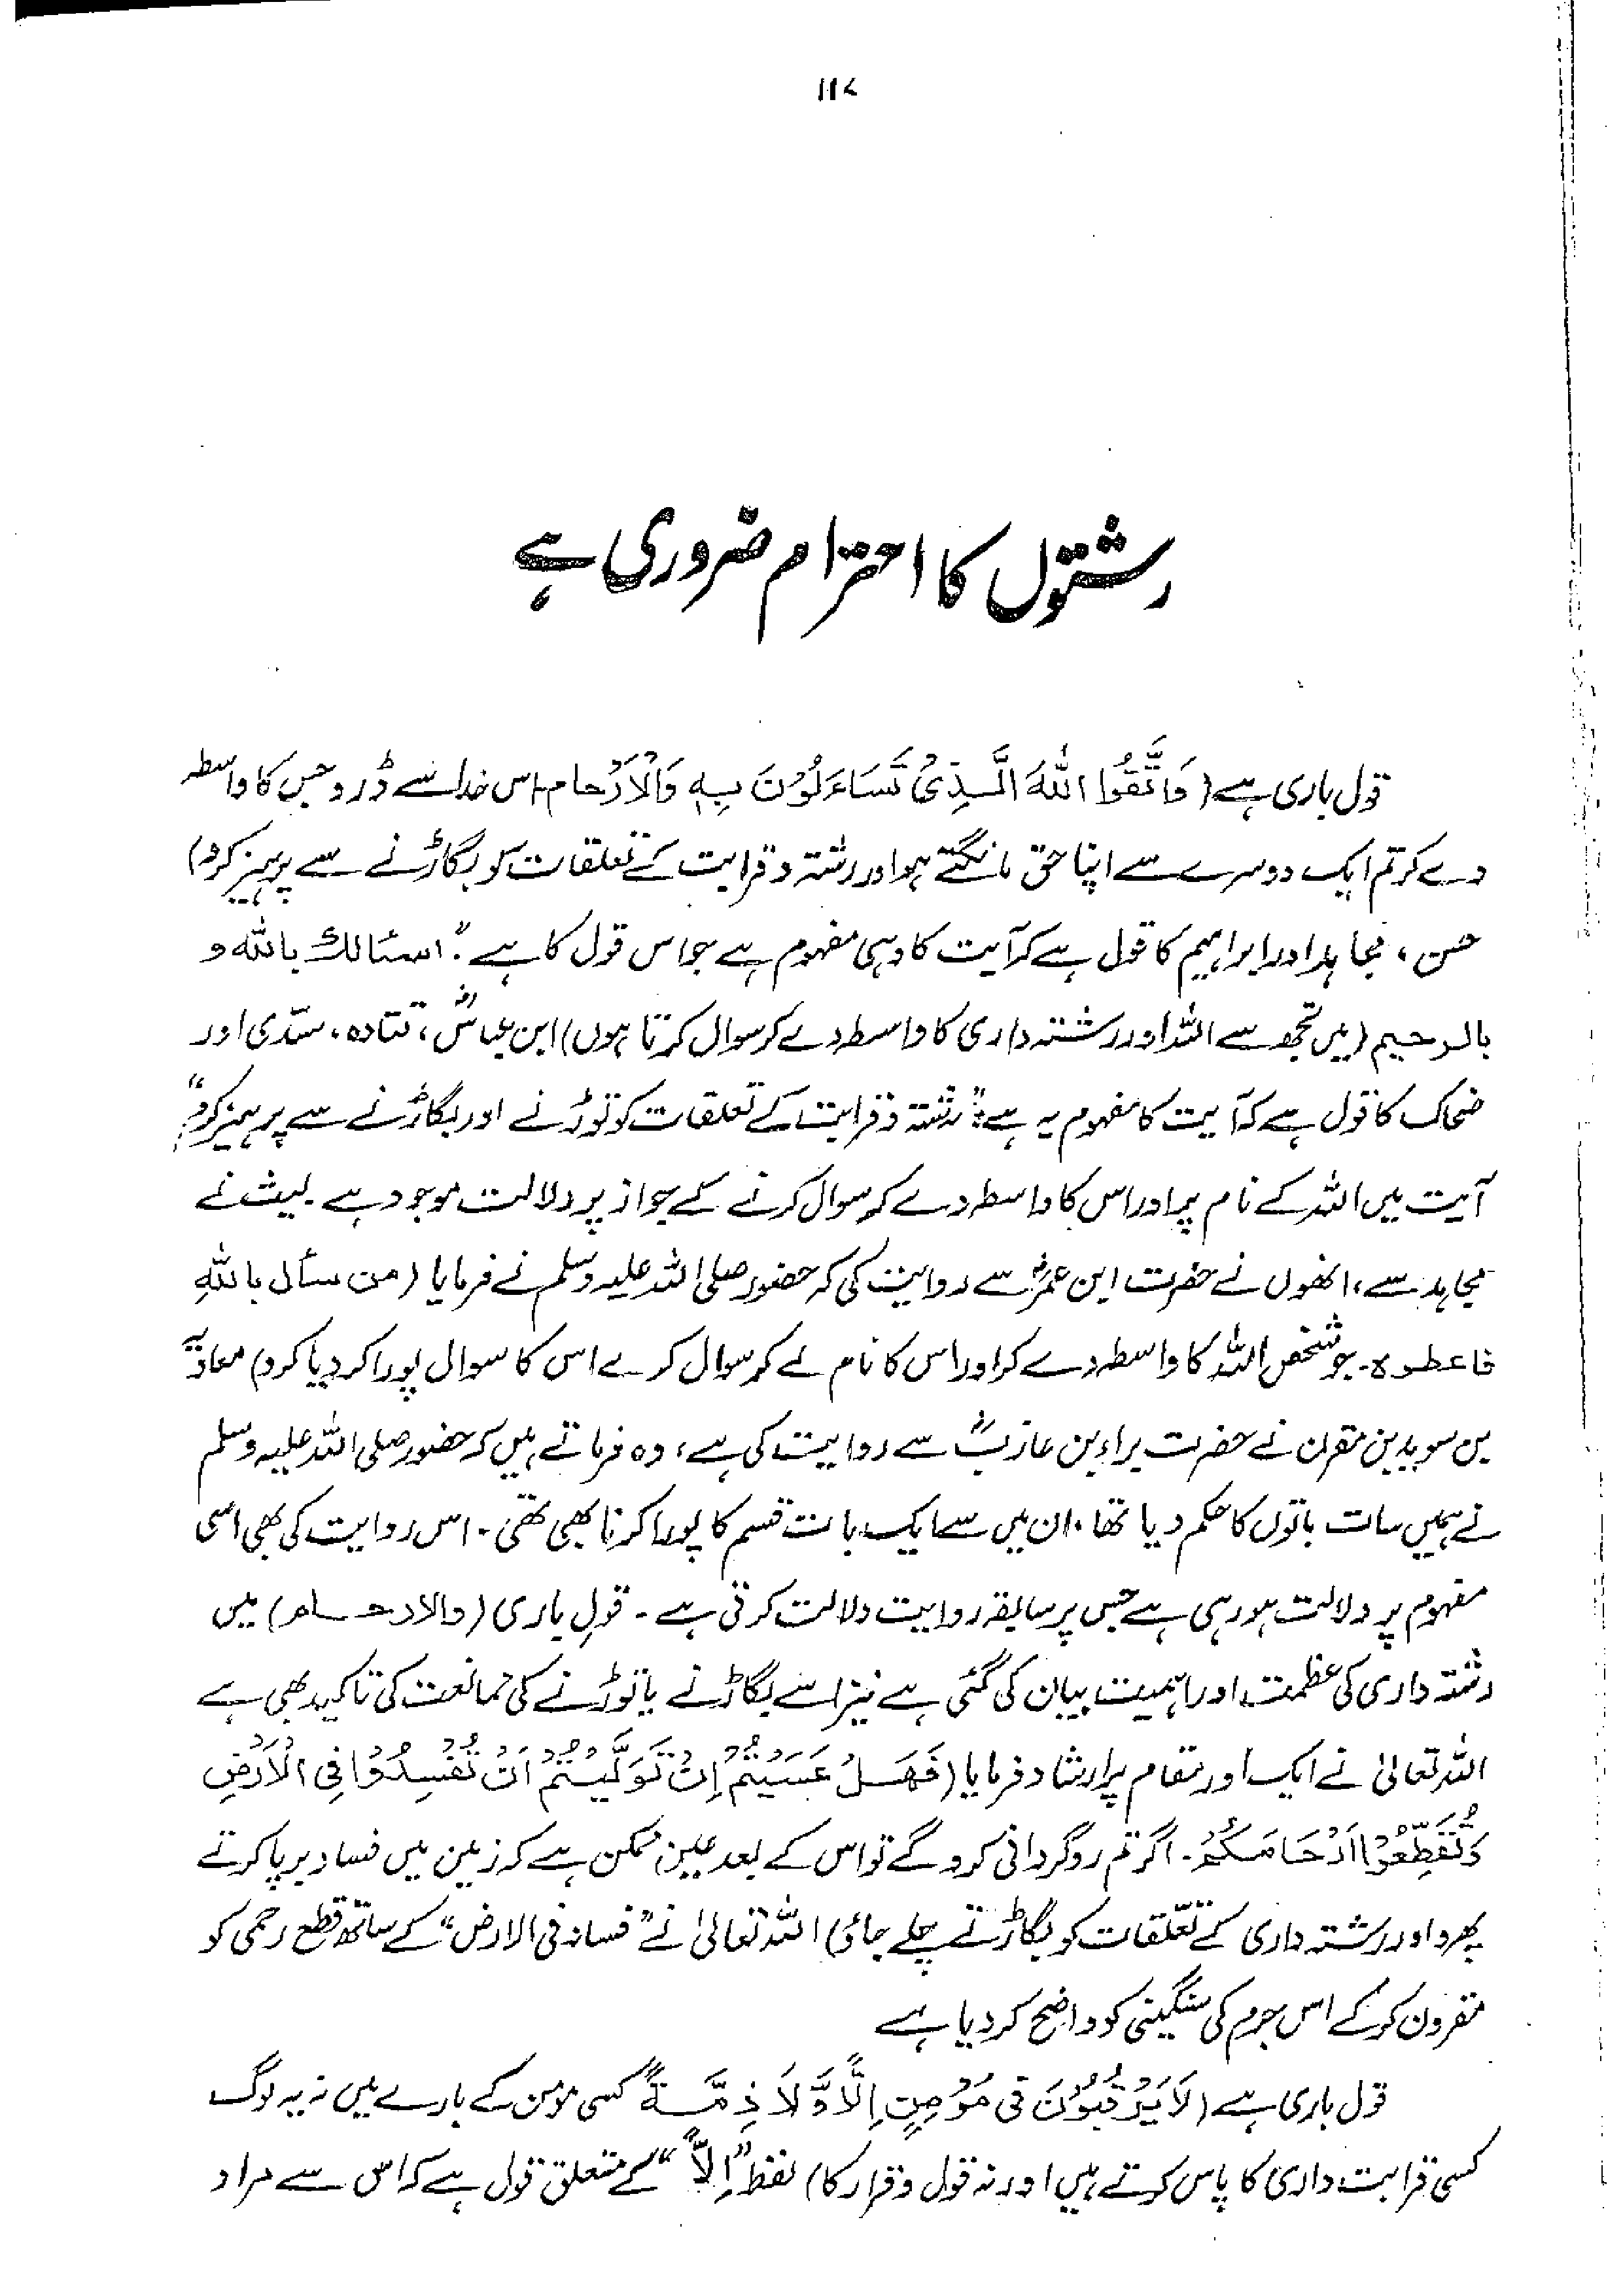 ۱۱۷
رشتوں کا احترام ضروری ہے
قول باری ہے (وَاتَّقُوا اللّٰهَ الَّذِیْ تَسَاءَلُوْنَ بِهٖ وَالْاَرْحَام۔ اس خدا سے ڈرو جس کا واسطہ
دے کر تم ایک دوسرے سے اپنا حق مانگتے ہو اور رشتہ و قرابت کے تعلقات کو بگاڑنے سے پرہیز کرو)
حسن، مجاہد اور ابراہیم کا قول ہے کہ آیت کا وہی مفہوم ہے جو اس قول کا ہے "اسئالك بالله و
بالرحیم (میں تجھ سے اللہ اور رشتہ داری کا واسطہ دے کر سوال کرتا ہوں) ابن عباسؓ، قتادہ، سدّی اور
ضحاک کا قول ہے کہ آیت کا مفہوم یہ ہے "رشتہ و قرابت کے تعلقات کو توڑنے اور بگاڑنے سے پرہیز کرو"
آیت میں اللہ کے نام پر اور اس کا واسطہ دے کر سوال کرنے کے جواز پر دلالت موجود ہے۔ لیث نے
مجاہد سے، انھوں نے حضرت ابن عمرؓ سے روایت کی کہ حضور صلی اللہ علیہ وسلم نے فرمایا (من سأل باللهِ
فاعطوه۔ جو شخص اللہ کا واسطہ دے کر اور اس کا نام لے کر سوال کرے اس کا سوال پورا کر دیا کرو) معاویہ
بن سوید بن مقرن نے حضرت براء بن عازبؓ سے روایت کی ہے، وہ فرماتے ہیں کہ حضور صلی اللہ علیہ وسلم
نے ہمیں سات باتوں کا حکم دیا تھا، ان میں سے ایک بات قسم کا پورا کرنا بھی تھی۔ اس روایت کی بھی اسی
مفہوم پر دلالت ہو رہی ہے جس پر سابقہ روایت دلالت کرتی ہے۔ قولِ باری (والارحام) میں
رشتہ داری کی عظمت اور اہمیت بیان کی گئی ہے نیز اسے بگاڑنے یا توڑنے کی ممانعت کی تاکید بھی ہے
اللہ تعالیٰ نے ایک اور مقام پر ارشاد فرمایا (فَهَلْ عَسَیْتُمْ اِنْ تَوَلَّیْتُمْ اَنْ تُفْسِدُوْا فِی الْاَرْضِ
وَتُقَطِّعُوْا اَرْحَامَكُمْ۔ اگر تم روگردانی کرو گے تو اس کے بعد عین ممکن ہے کہ زمین میں فساد برپا کرتے
پھرو اور رشتہ داری کے تعلّقات کو بگاڑتے چلے جاؤ) اللہ تعالیٰ نے "فساد فی الارض" کے ساتھ قطع رحمی کو
مقرون کر کے اس جرم کی سنگینی کو واضح کر دیا ہے
قول باری ہے (لَا یَرْقُبُوْنَ فِی مُؤْمِنٍ اِلًّا وَّلَا ذِمَّةً کسی مومن کے بارے میں نہ یہ لوگ
کسی قرابت داری کا پاس کرتے ہیں اور نہ قول و قرار کا) لفظ "اِلًّا" کے متعلق قول ہے کہ اس سے مراد